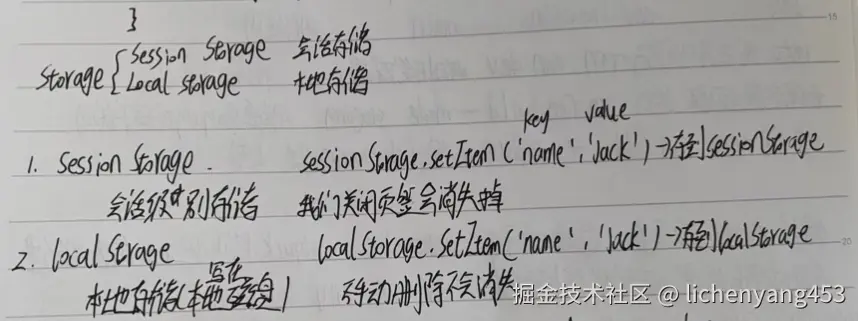 }
Storage { Session Storage 会话存储
Local storage 本地存储
key value
1. Session Storage. sessionStorage.setItem('name','Jack')→存到sessionStorage
会话级别存储 我们关闭页签会消失掉
2. local Storage localStorage.SetItem('name','Jack')→存到localStorage
写在
本地存储(本地磁盘) 不手动删除不会消失
掘金技术社区 @ lichenyang453
15
20